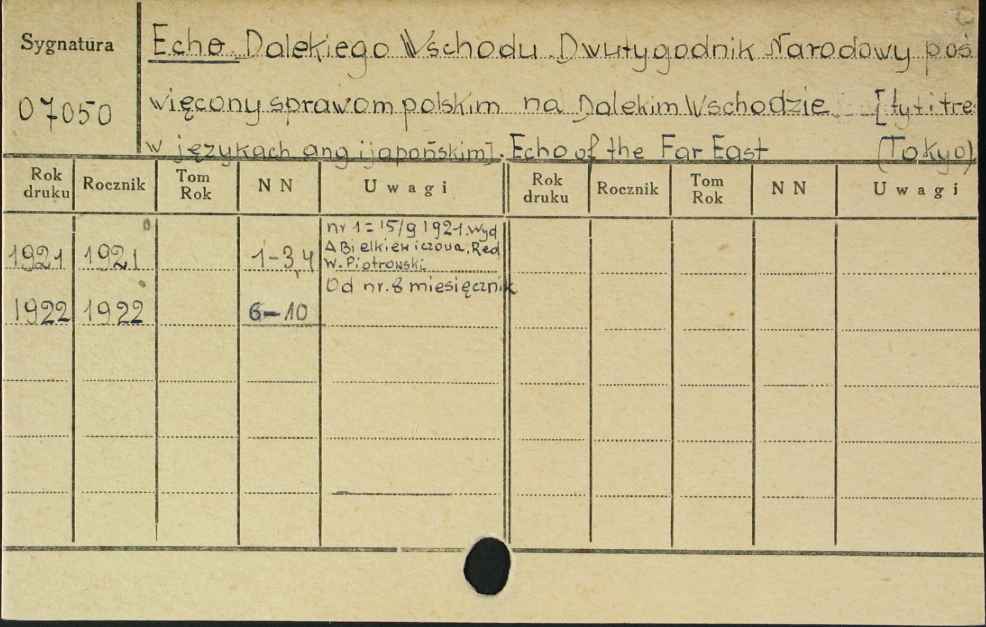 Sygnatura
07050
Echo Dalekiego Wschodu. Dwutygodnik Narodowy poś
więcony sprawom polskim na Dalekim Wschodzie [tyt i treść
w językach ang i japońskim]. Echo of the Far East (Tokyo)
Rok druku Rocznik Tom Rok NN Uwagi Rok druku Rocznik Tom Rok NN Uwagi
1921 1921 1-3,4 nr 1 = 15/9 1921. Wyd
A Bielkiewiczowa, Red
W. Piotrowski
Od nr. 8 miesięcznik
1922 1922 6-10